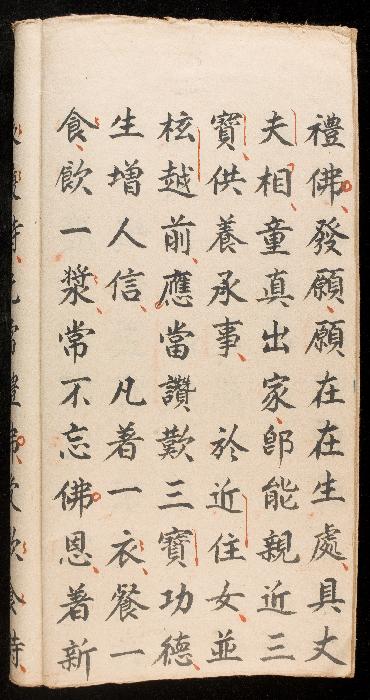 禮佛發願願在在生處具丈
夫相童真出家卽能親近三
寶供養承事　於近住女並
柭越前應當讚歎三寶功德
生增人信　凡着一衣餐一
食飲一漿常不忘佛恩着新